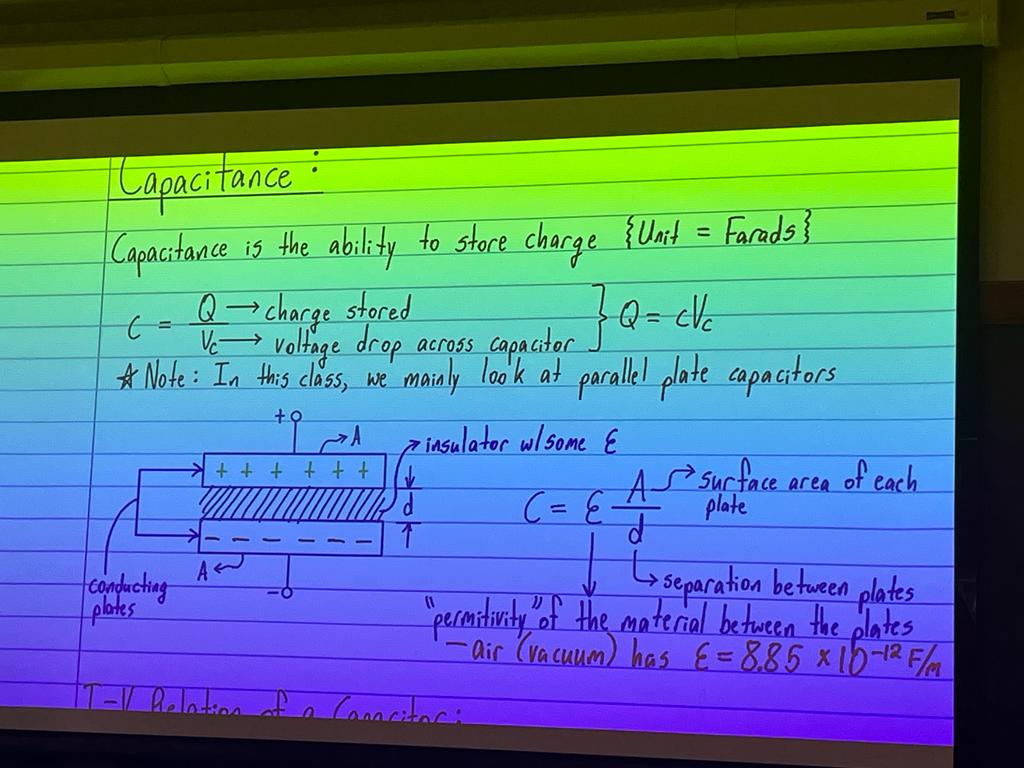 Capacitance:
Capacitance is the ability to store charge {Unit = Farads}
C = Q/Vc → charge stored → voltage drop across capacitor } Q = cVc
☆ Note: In this class, we mainly look at parallel plate capacitors
+ → A → insulator w/some ε
+ + + + + +
d
C = ε A/d → surface area of each plate
– – – – – –
A
–
→ separation between plates
conducting plates
"permitivity" of the material between the plates
– air (vacuum) has ε = 8.85 × 10⁻¹² F/m
I-V Relation of a Capacitor: